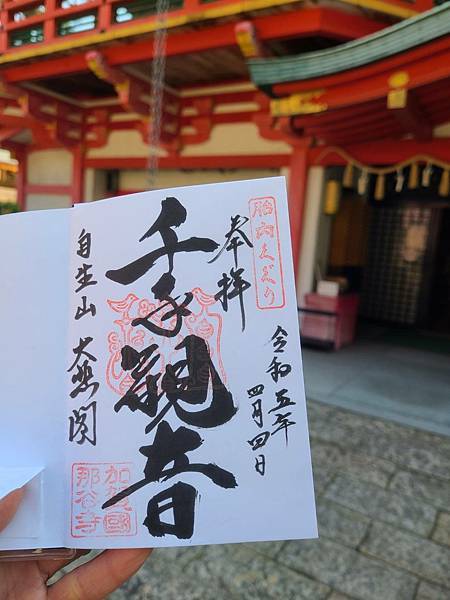 胎内くぐり
奉拝
令和五年
四月四日
千手観音
自生山 大悲閣
加賀國
那谷寺